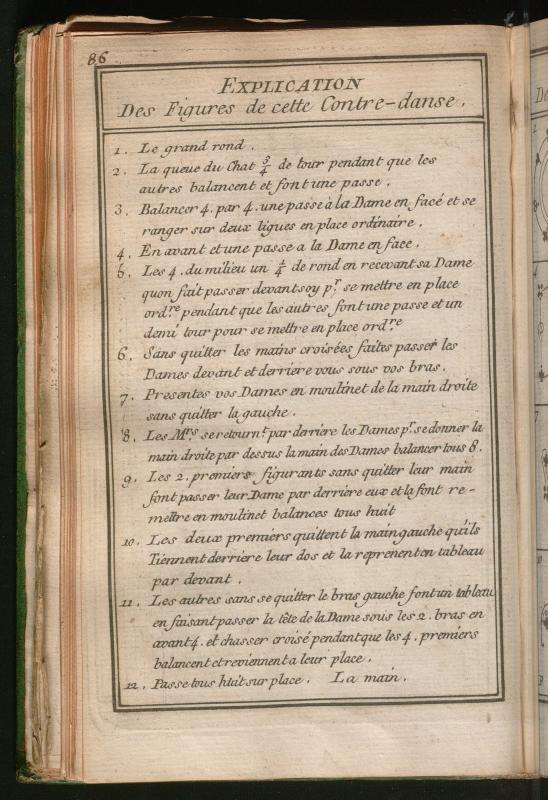 86
EXPLICATION
Des Figures de cette Contre-danse.
1. Le grand rond.
2. La queue du Chat 3/4 de tour pendant que les
autres balancent et font une passe.
3. Balancer 4. par 4. une passe à la Dame en facé et se
ranger sur deux ligues en place ordinaire.
4. En avant et une passe a la Dame en face.
5. Les 4. du milieu un 1/4 de rond en recevant sa Dame
quon fait passer devant soy pr. se mettre en place
ordre pendant que les autres font une passe et un
demi tour pour se mettre en place ordre
6. Sans quitter les mains croisées faites passer les
Dames devant et derriere vous sous vos bras.
7. Presentes vos Dames en moulinet de la main droite
sans quitter la gauche.
8. Les Mrs. se retournt. par derriere les Dames pr. se donner la
main droite par dessus la main des Dames balancer tous 8.
9. Les 2. premiers figurants sans quitter leur main
font passer leur Dame par derriere eux et la font re-
mettre en moulinet balances tous huit
10. Les deux premiers quittent la main gauche qu'ils
Tiennent derriere leur dos et la reprenent en tableau
par devant.
11. Les autres sans se quitter le bras gauche font un tableau
en faisant passer la tête de la Dame sous les 2. bras en
avant 4. et chasser croisé pendant que les 4. premiers
balancent et reviennent a leur place.
12. Passe tous huit sur place. La main.
De